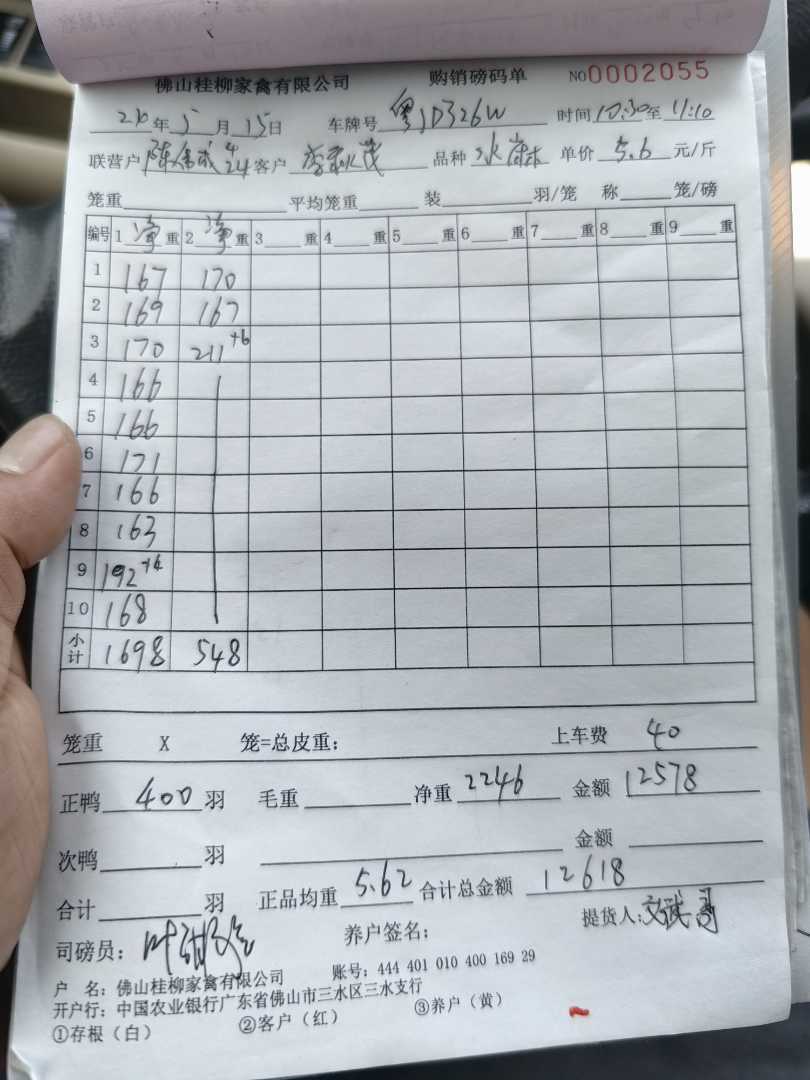 佛山桂柳家禽有限公司 购销磅码单 NO0002055
年5月15日 车牌号粤JD326W 时间10:30至11:10
联营户 客户 品种 单价5.6元/斤
笼重 平均笼重 装 羽/笼 称 笼/磅
编号 1净重 2净重 3重 4重 5重 6重 7重 8重 9重
1 167 170
2 169 167
3 170 211+6
4 166
5 166
6 171
7 166
8 163
9 192+6
10 168
小计 1698 548
笼重 X 笼=总皮重: 上车费 40
正鸭400羽 毛重 净重2246 金额12578
次鸭 羽 金额
合计 羽 正品均重5.62 合计总金额12618
司磅员: 养户签名: 提货人:文武哥
户 名: 佛山桂柳家禽有限公司 账号: 444 401 010 400 169 29
开户行: 中国农业银行广东省佛山市三水区三水支行
①存根(白) ②客户(红) ③养户(黄)